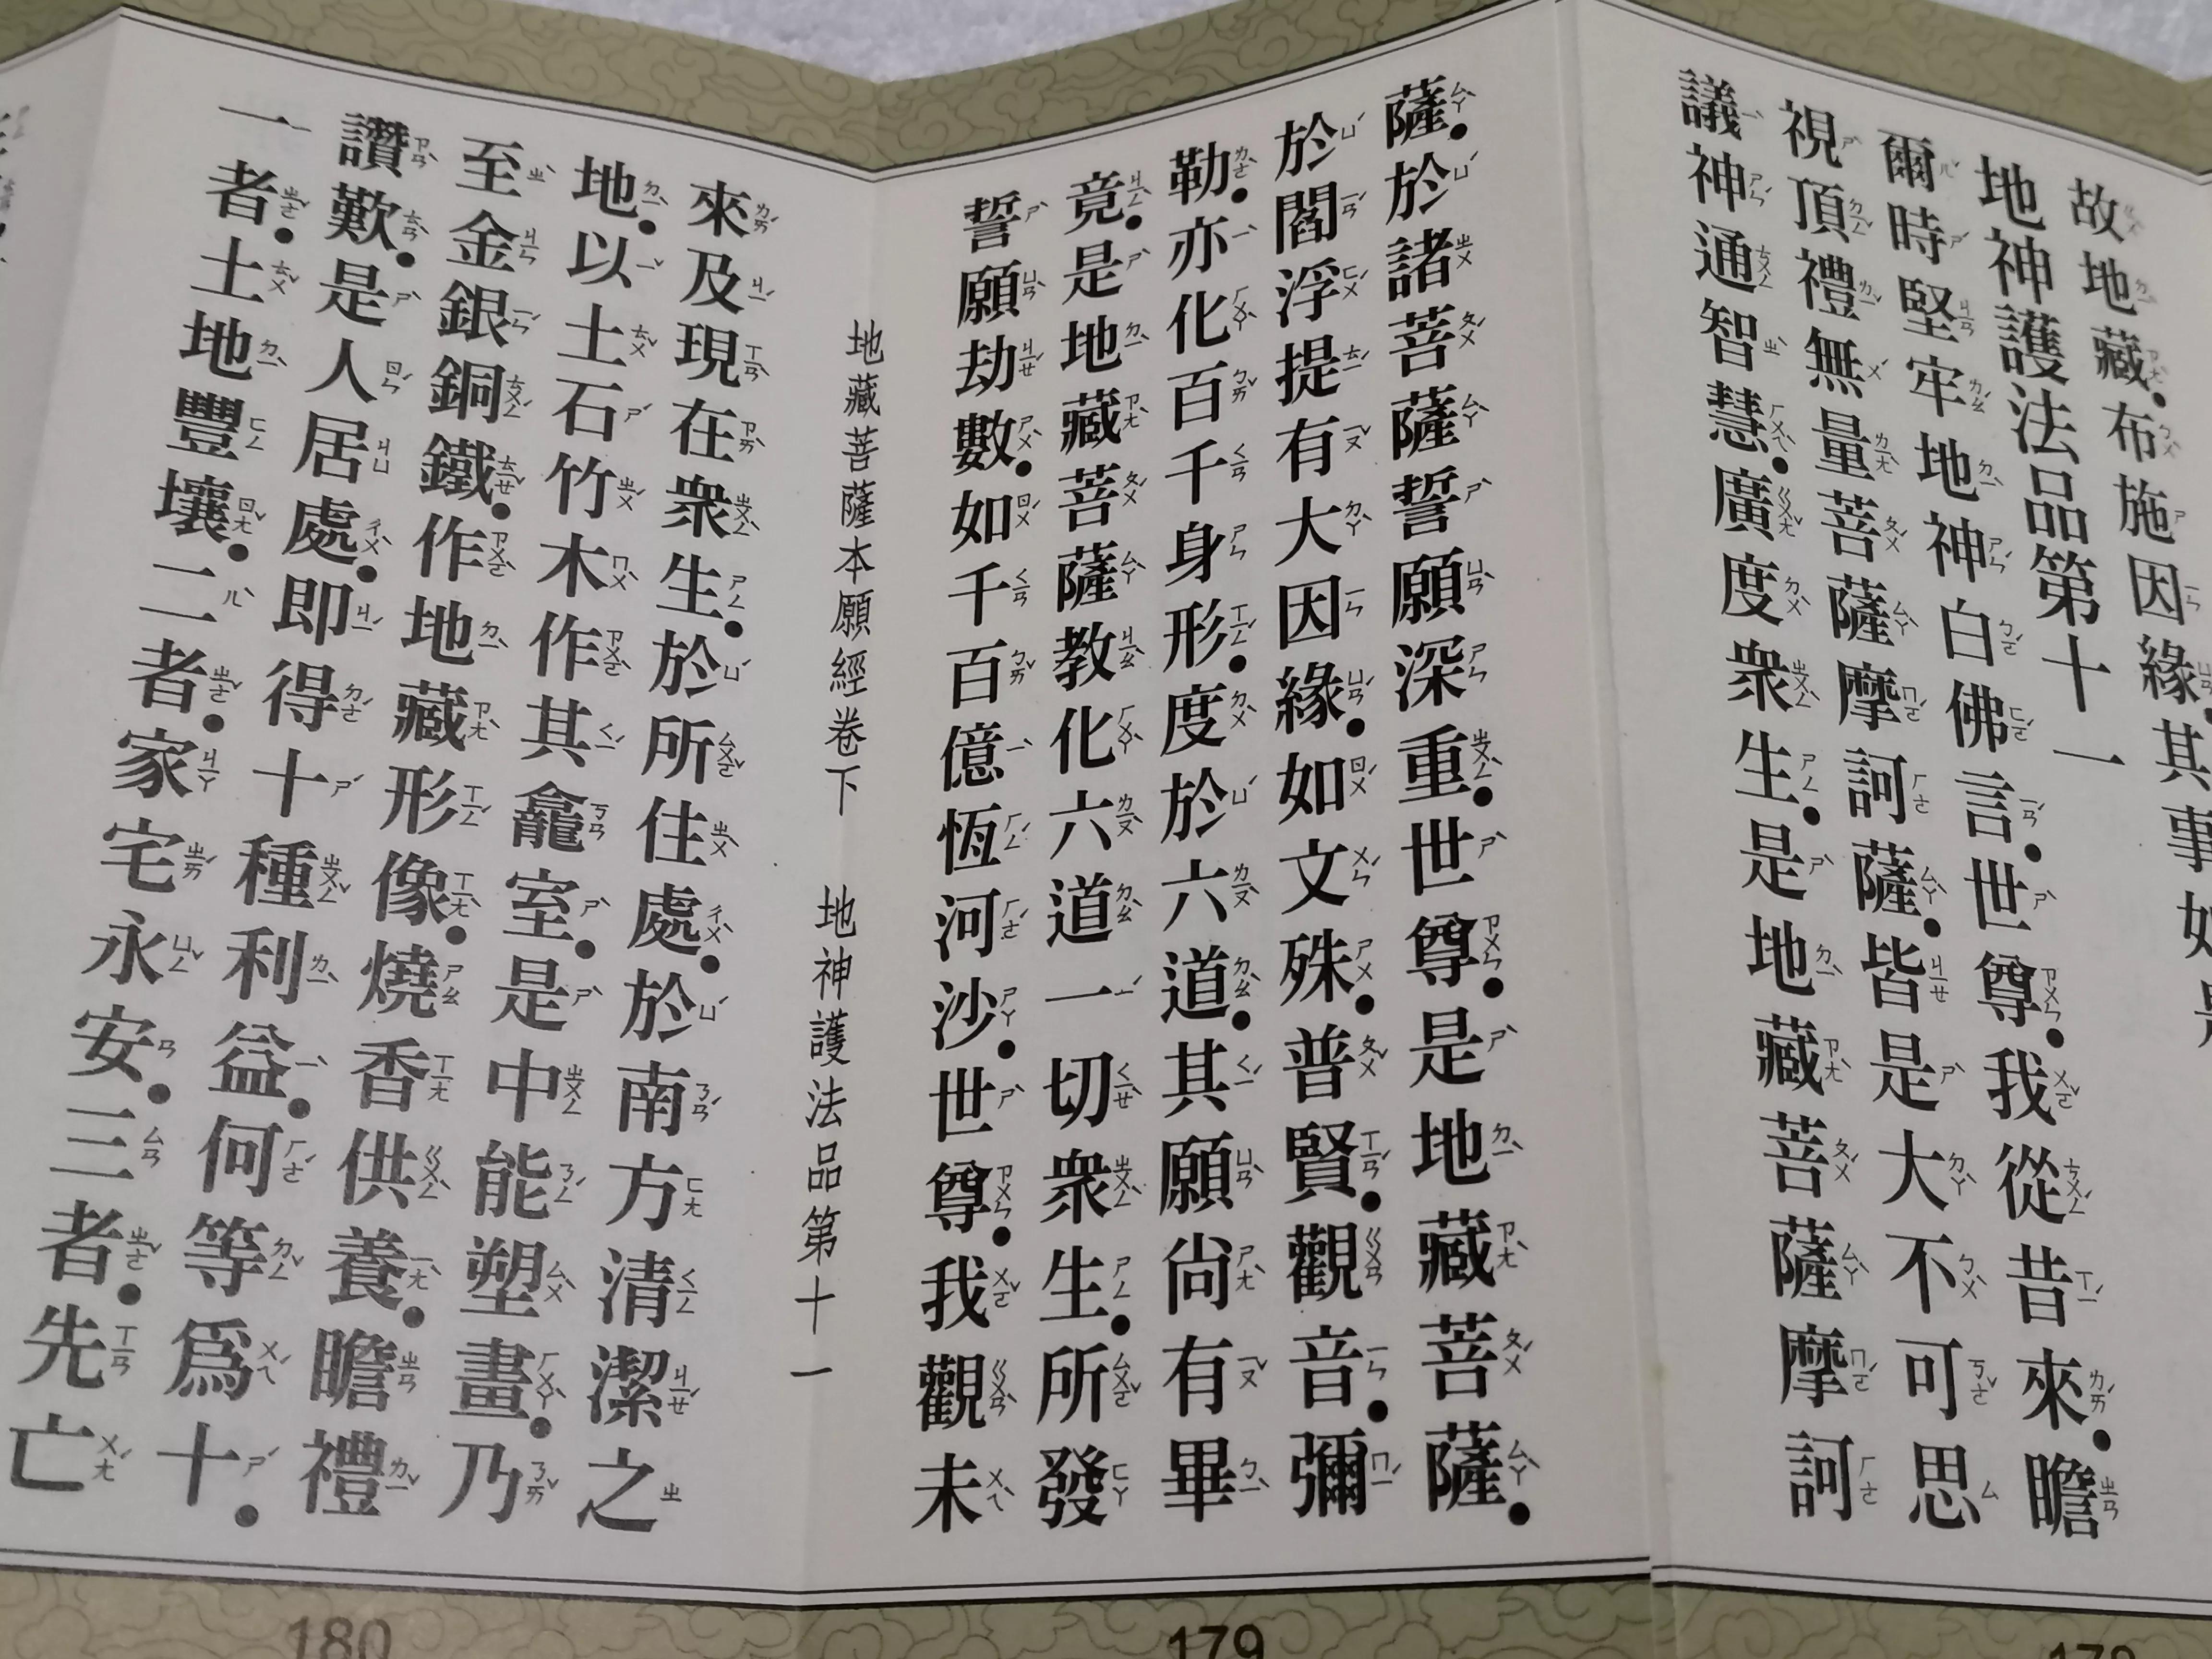 其事如是
故地藏布施因緣
地神護法品第十一
爾時堅牢地神白佛言世尊我從昔來瞻
視頂禮無量菩薩摩訶薩皆是大不可思
議神通智慧廣度衆生是地藏菩薩摩訶
薩於諸菩薩誓願深重世尊是地藏菩薩
於閻浮提有大因緣如文殊普賢觀音彌
勒亦化百千身形度於六道其願尚有畢
竟是地藏菩薩教化六道一切衆生所發
誓願劫數如千百億恆河沙世尊我觀未
地藏菩薩本願經卷下 地神護法品第十一
來及現在衆生於所住處於南方清潔之
地以土石竹木作其龕室是中能塑畫乃
至金銀銅鐵作地藏形像燒香供養瞻禮
讚歎是人居處即得十種利益何等爲十
一者土地豐壤二者家宅永安三者先亡
178
179
180